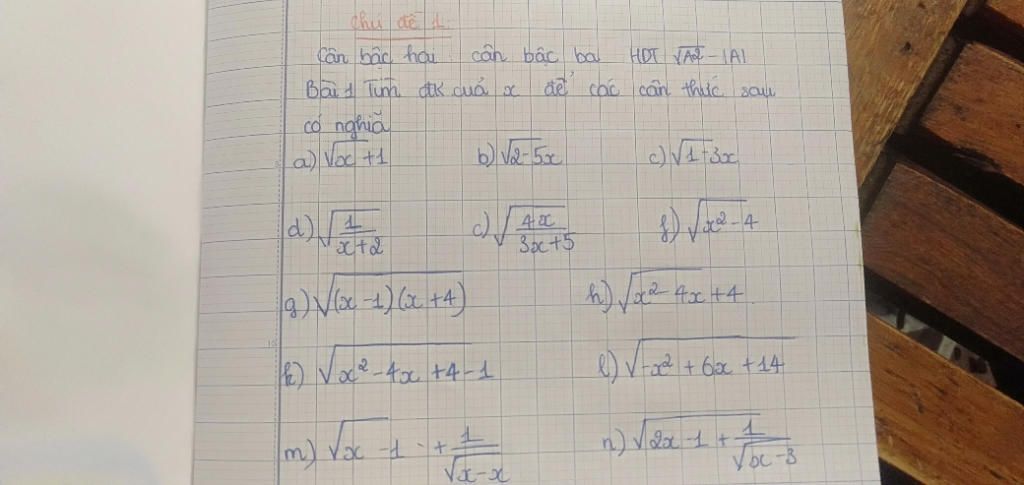 Chủ đề 1:
Căn bậc hai căn bậc ba HĐT √A2 - |A|
Bài 1 Tìm đk của x để các căn thức sau
có nghĩa
a) √x + 1 b) √2-5x c) √1-3x
d) √1/(x+2) c) √4x/(3x+5) f) √x² - 4
g) √(x-1)(x+4) h) √x² - 4x + 4
k) √x² - 4x + 4 - 1 l) √-x² + 6x + 14
m) √x - 1 + 1/√x-x n) √2x - 1 + 1/√x-3